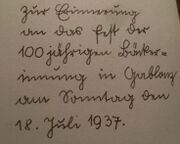 Zur Erinnerung
an das Fest der
100 jährigen Bäcker=
innung in Gablonz
am Sonntag den
18. Juli 1937.